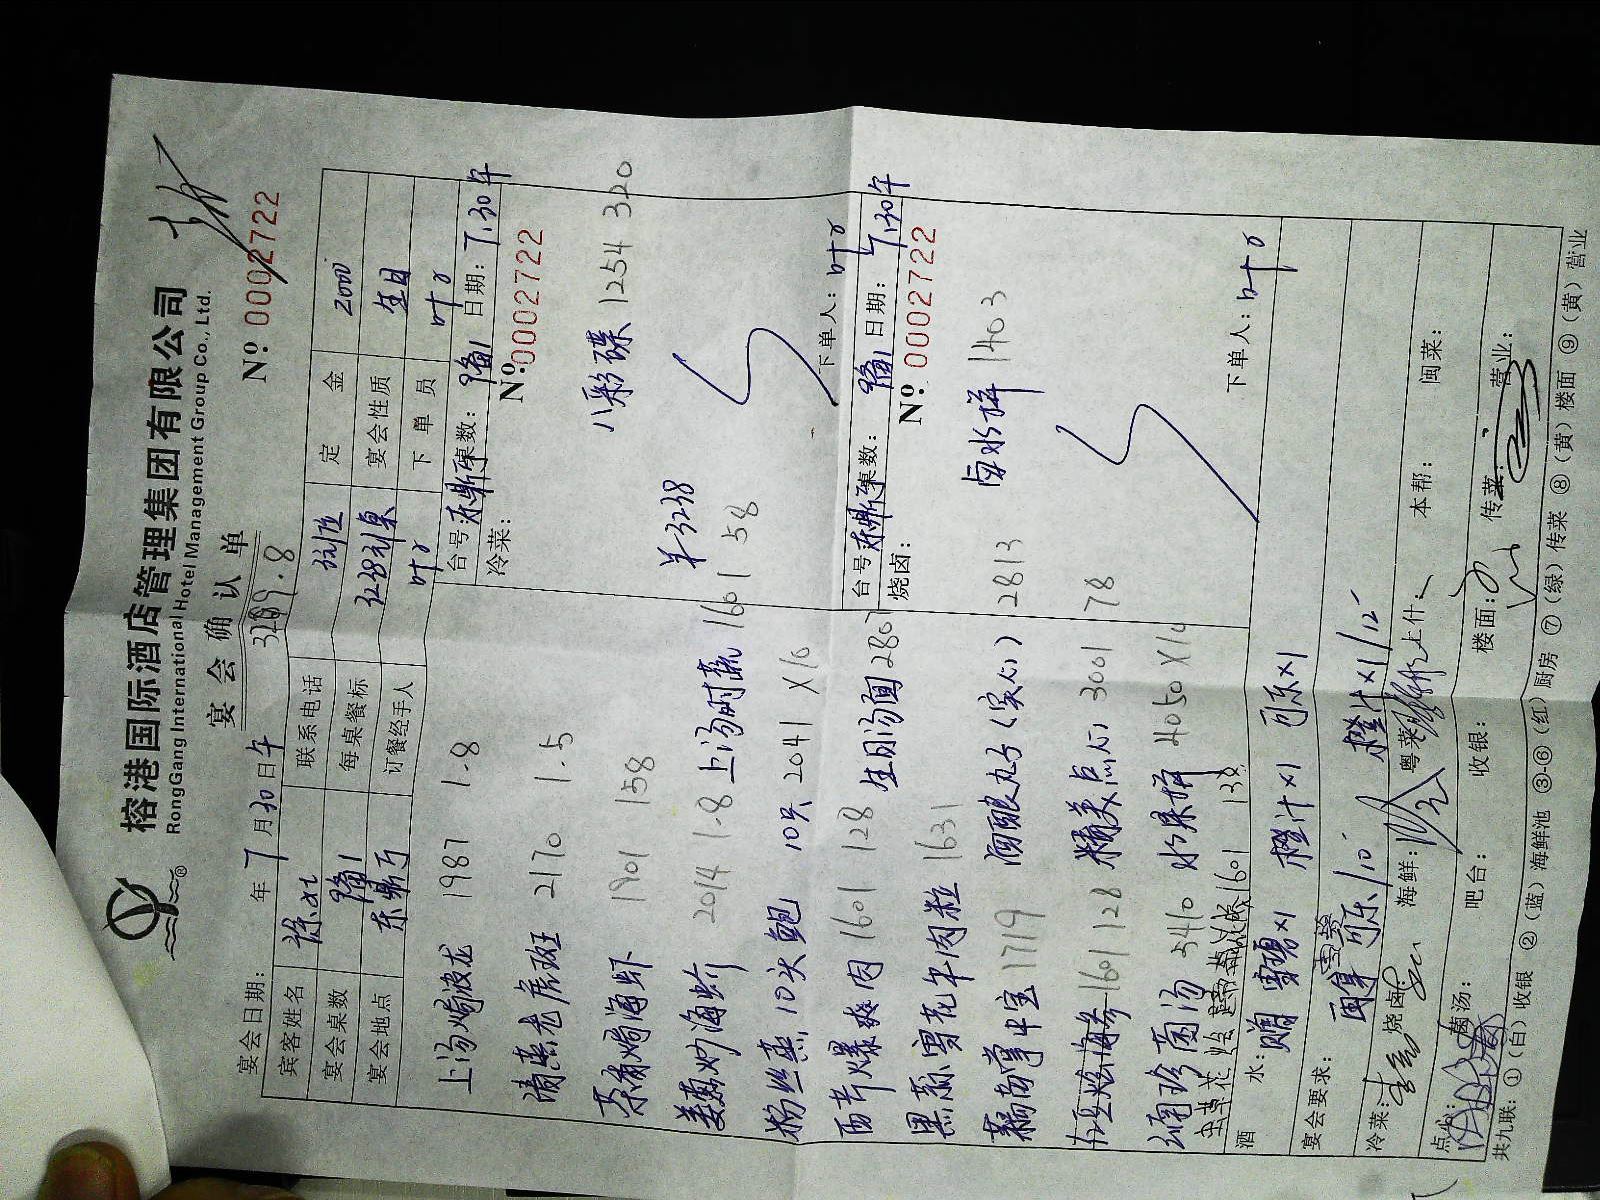 榕港国际酒店管理集团有限公司
RongGang International Hotel Management Group Co., Ltd.
宴会确认单
№ 0002722
宴会日期: 年 7月30日午
宾客姓名 联系电话 定金 2000
宴会桌数 每桌餐标 3238元/桌 宴会性质 生日
宴会地点 东鼎厅 订餐经手人 叶 下单员 叶
台号 东鼎厅 桌数: 日期: 7.30午
冷菜: № 0002722
八彩碟 1254 320
下单人: 叶
台号 东鼎厅 桌数: 日期: 7.30午
烧卤: № 0002722
卤水拼 1403
下单人: 叶
上汤焗波龙 1987 1.8
清蒸老虎斑 2170 1.5
焗海虾 1901 158
姜葱炒海蚧 2014 1.8 上汤时蔬 1601 58
粉丝蒸10头鲍 10只 2041 X10
西芹爆爽肉 1601 128 生日汤面 280
黑蒜雪花牛肉粒 1631
1719 酒酿丸子(实心) 2813
1601 128 精美点心 3001 78
菌汤 5410 水果拼 4050 X10
虫草花烩 1601 138
酒水: 赠 雪碧X1 橙汁X1 可乐X1
宴会要求: 可乐/10 橙汁X1/12
冷菜: 烧卤: 海鲜: 粤菜: 上什: 本帮: 闽菜:
点心: 菌汤: 吧台: 收银: 楼面: 传菜: 营业:
共九联: ①(白)收银 ②(蓝)海鲜池 ③-⑥(红)厨房 ⑦(绿)传菜 ⑧(黄)楼面 ⑨(黄)营业